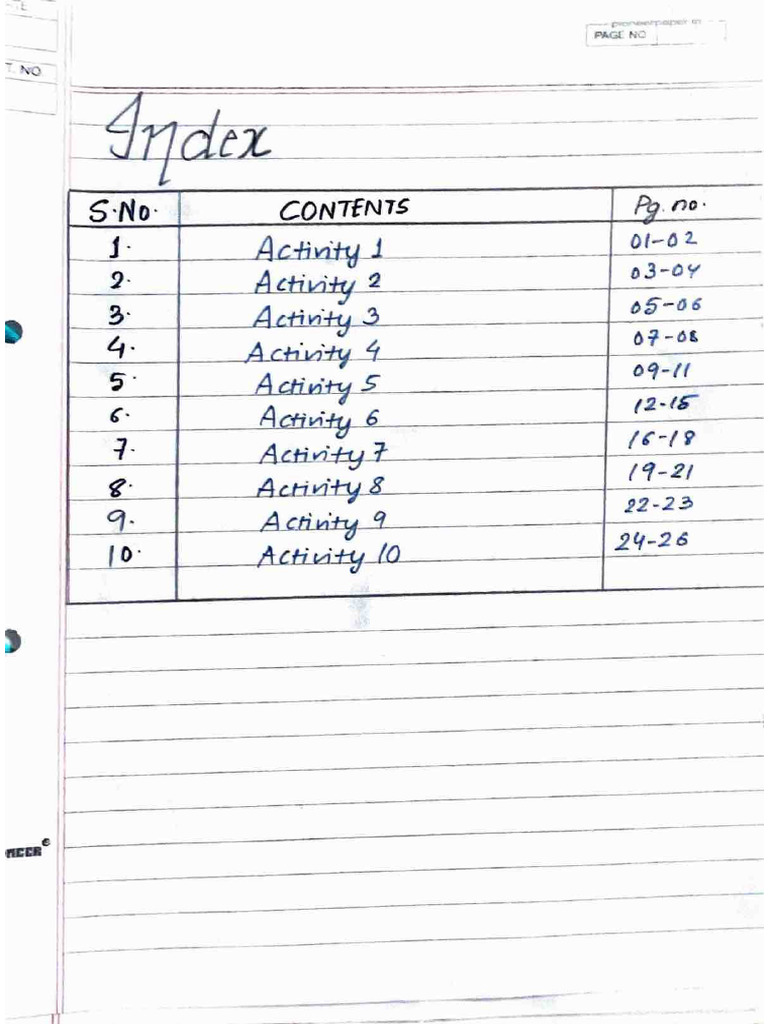 pioneerpaper.in
PAGE NO
T. NO.
Index
S.No. CONTENTS Pg. no.
1. Activity 1 01-02
2. Activity 2 03-04
3. Activity 3 05-06
4. Activity 4 07-08
5. Activity 5 09-11
6. Activity 6 12-15
7. Activity 7 16-18
8. Activity 8 19-21
9. Activity 9 22-23
10. Activity 10 24-26